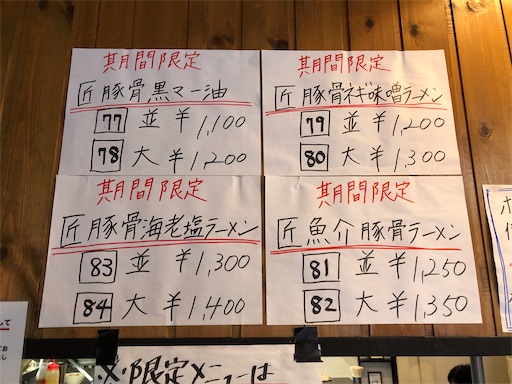 期間限定
匠 豚骨黒マー油
77 並 ¥1,100
78 大 ¥1,200
期間限定
匠 豚骨ネギ味噌ラーメン
79 並 ¥1,200
80 大 ¥1,300
期間限定
匠 豚骨海老塩ラーメン
83 並 ¥1,300
84 大 ¥1,400
期間限定
匠 魚介豚骨ラーメン
81 並 ¥1,250
82 大 ¥1,350
※限定メニューは